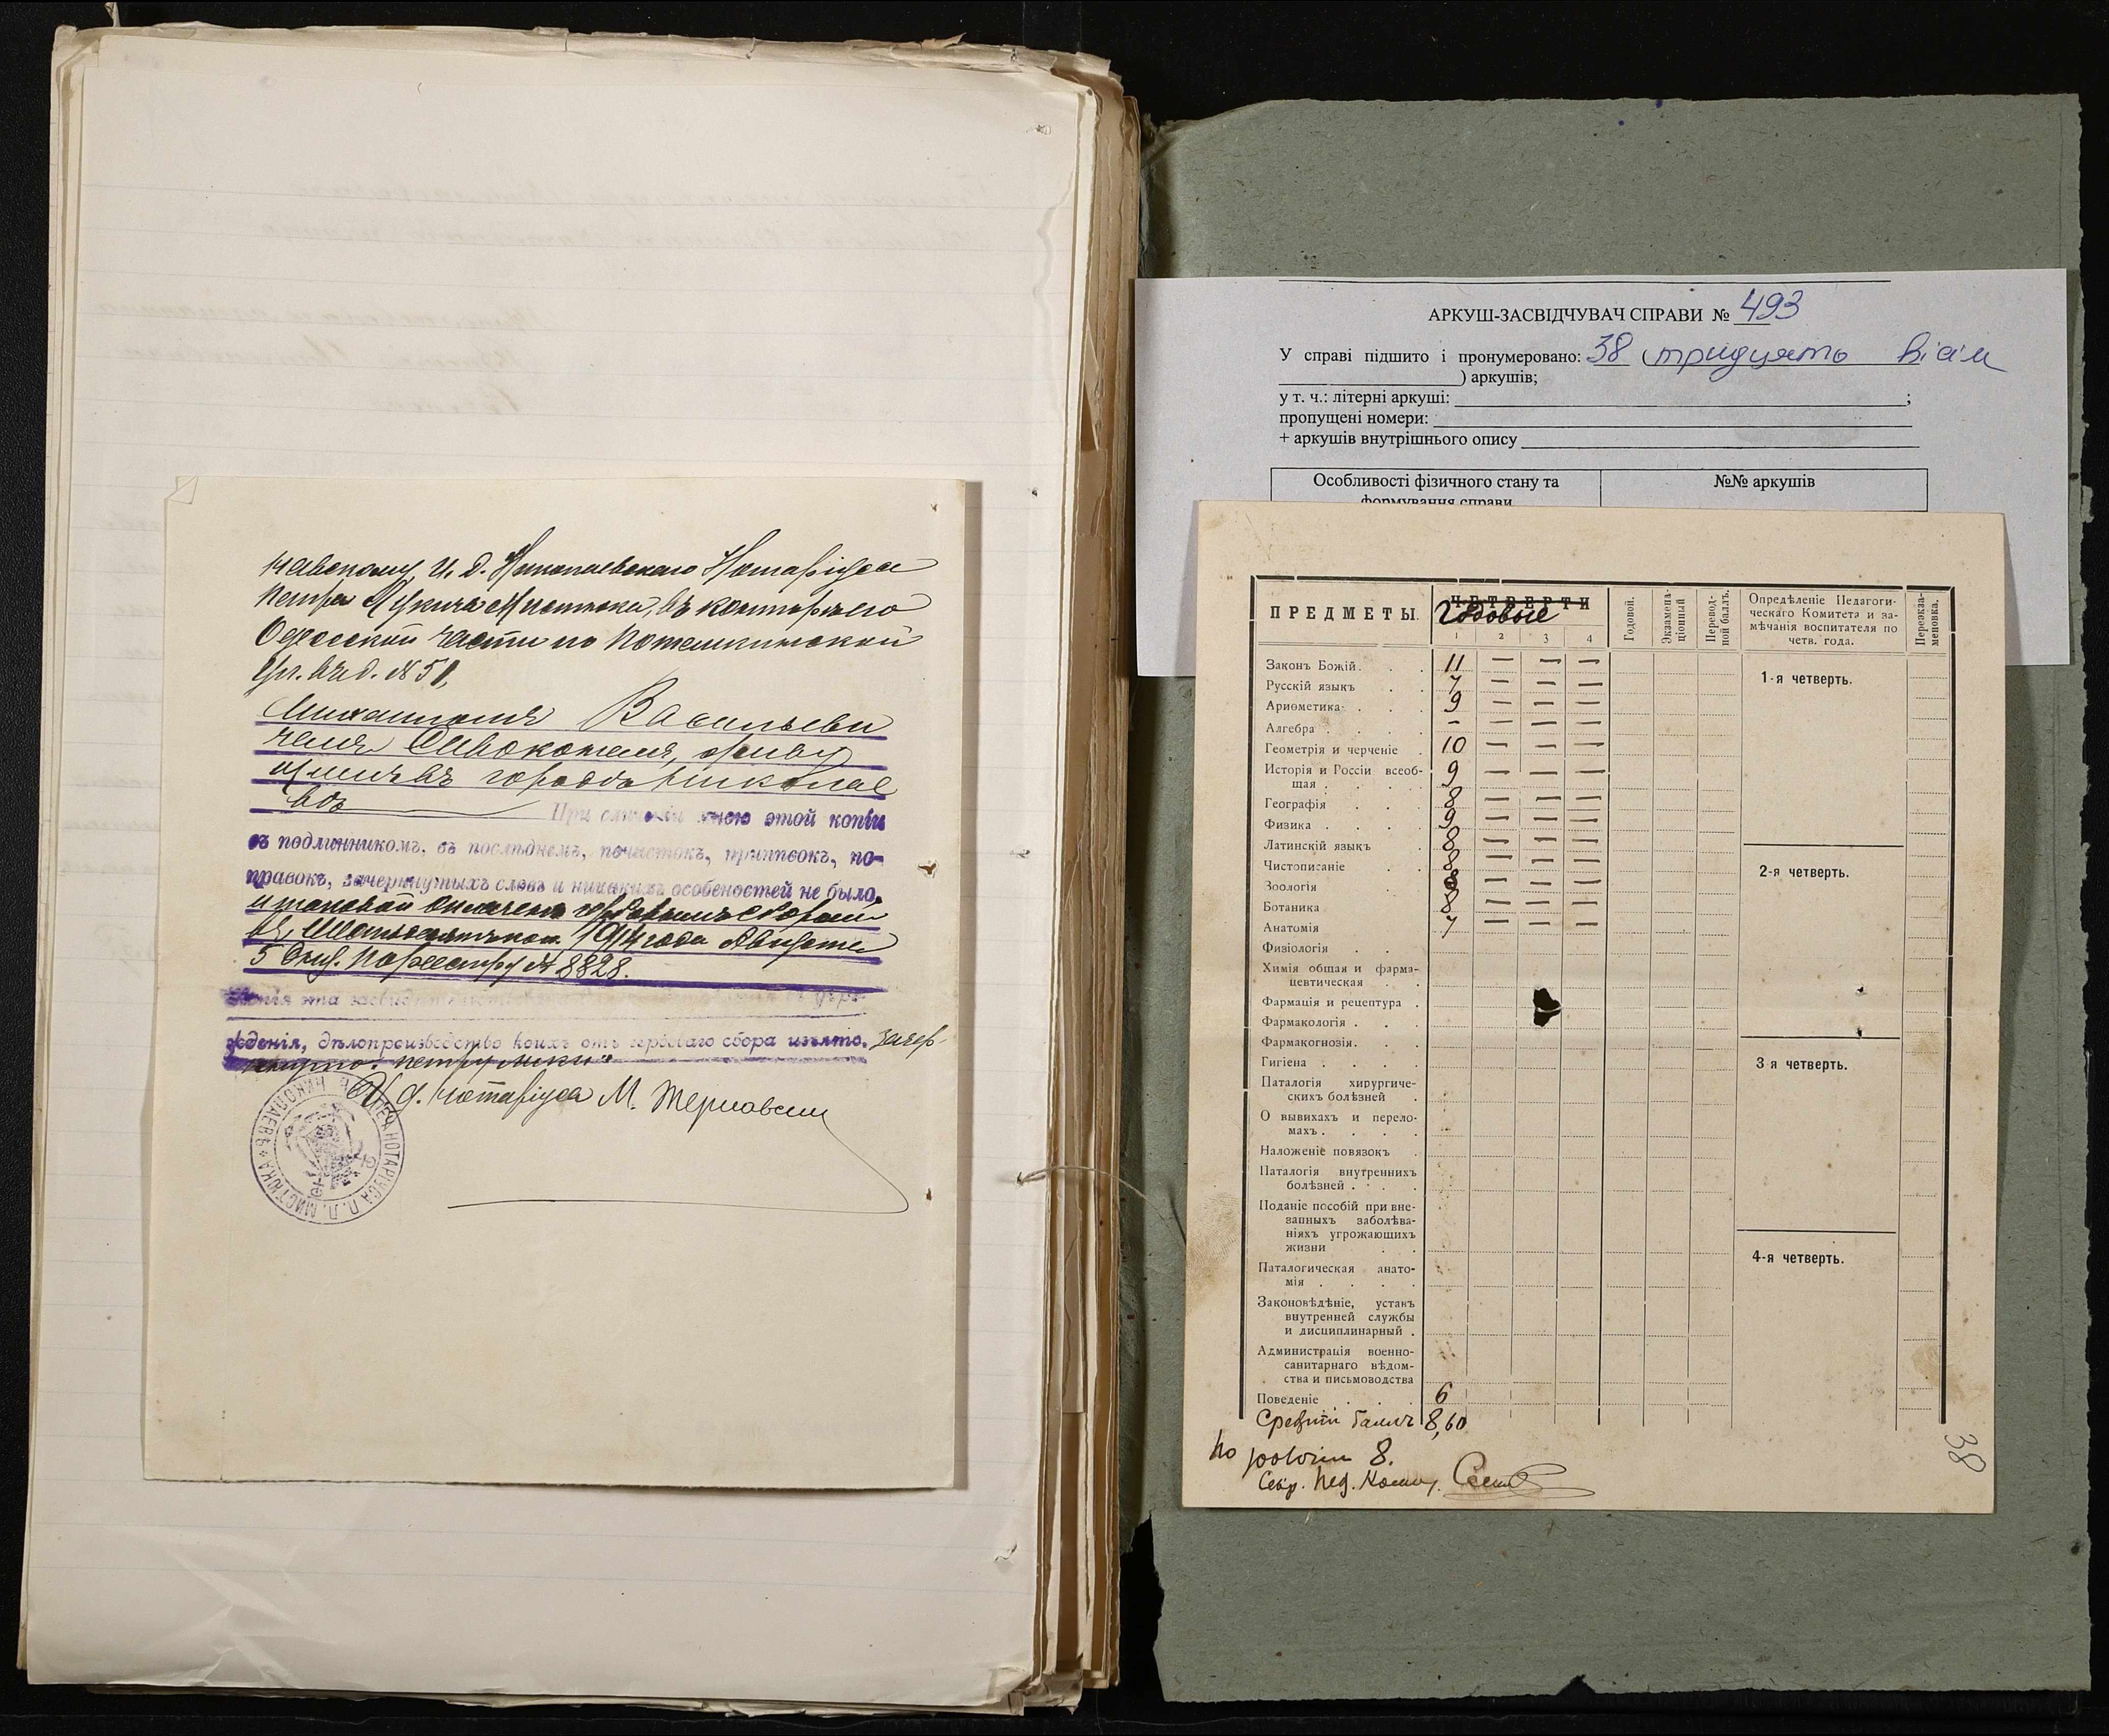 Нотаріуса
Петра Лукича Мистюка, въ конторѣ его
Одесской части по Потемкинской
ул. въ д. № 51,
Михаиломъ Васильеви
чемъ Сивокотемъ, живу
щимъ въ городѣ Никола
вѣ
При сличеніи мною этой копіи
съ подлинникомъ, въ послѣднемъ, почистокъ, приписокъ, по-
правокъ, зачеркнутыхъ словъ и никакихъ особеностей не было,
и таковой оплаченъ гербовымъ сборомъ
1914 года Августа
5 дня. По реестру № 8828.
Копія эта
жденія, дѣлопроизводство коихъ отъ гербоваго сбора изъято. Зачер-
кнуто:
И. д. нотаріуса М. Терновскій
ПЕЧ. НОТАРІУСА П. Л. МИСТЮКА * Г. НИКОЛАЕВЪ
АРКУШ-ЗАСВІДЧУВАЧ СПРАВИ № 493
У справі підшито і пронумеровано: 38 (тридцять вісім
) аркушів;
у т. ч.: літерні аркуші: ;
пропущені номери:
+ аркушів внутрішнього опису
Особливості фізичного стану та формування справи
№№ аркушів
ПРЕДМЕТЫ. ЧЕТВЕРТИ Годовой. Экзамена-ціонный Перевод-ной баллъ. Опредѣленіе Педагоги-
ческаго Комитета и за-
мѣчанія воспитателя по
четв. года. Переэкза-меновка.
Годовые
1 2 3 4
Законъ Божій . . 11 — — —
Русскій языкъ . . 7 — — —
Ариѳметика . . . 9 — — —
Алгебра . . . . – — — —
Геометрія и черченіе . 10 — — —
Исторія и Россіи всеоб-
щая . . . . 9 — — —
Географія . . . 8 — — —
Физика . . . . 9 — — —
Латинскій языкъ . 8 — — —
Чистописаніе . . 8 — — —
Зоологія . . 8 — — —
Ботаника . . 8 — — —
Анатомія . . 7 — — —
Физіологія . .
Химія общая и фарма-
цевтическая . .
Фармація и рецептура .
Фармакологія . . .
Фармакогнозія . . .
Гигіена . . . .
Паталогія хирургиче-
скихъ болѣзней .
О вывихахъ и перело-
махъ . . . .
Наложеніе повязокъ .
Паталогія внутреннихъ
болѣзней . . .
Поданіе пособій при вне-
запныхъ заболѣва-
ніяхъ угрожающихъ
жизни . .
Паталогическая анато-
мія . . . .
Законовѣдѣніе, уставъ
внутренней службы
и дисциплинарный .
Администрація военно-
санитарнаго вѣдом-
ства и письмоводства
Поведеніе . . . 6
1-я четверть.
2-я четверть.
3-я четверть.
4-я четверть.
Средній баллъ 8,60
По 8.
Секр. Пед. Ком.
38